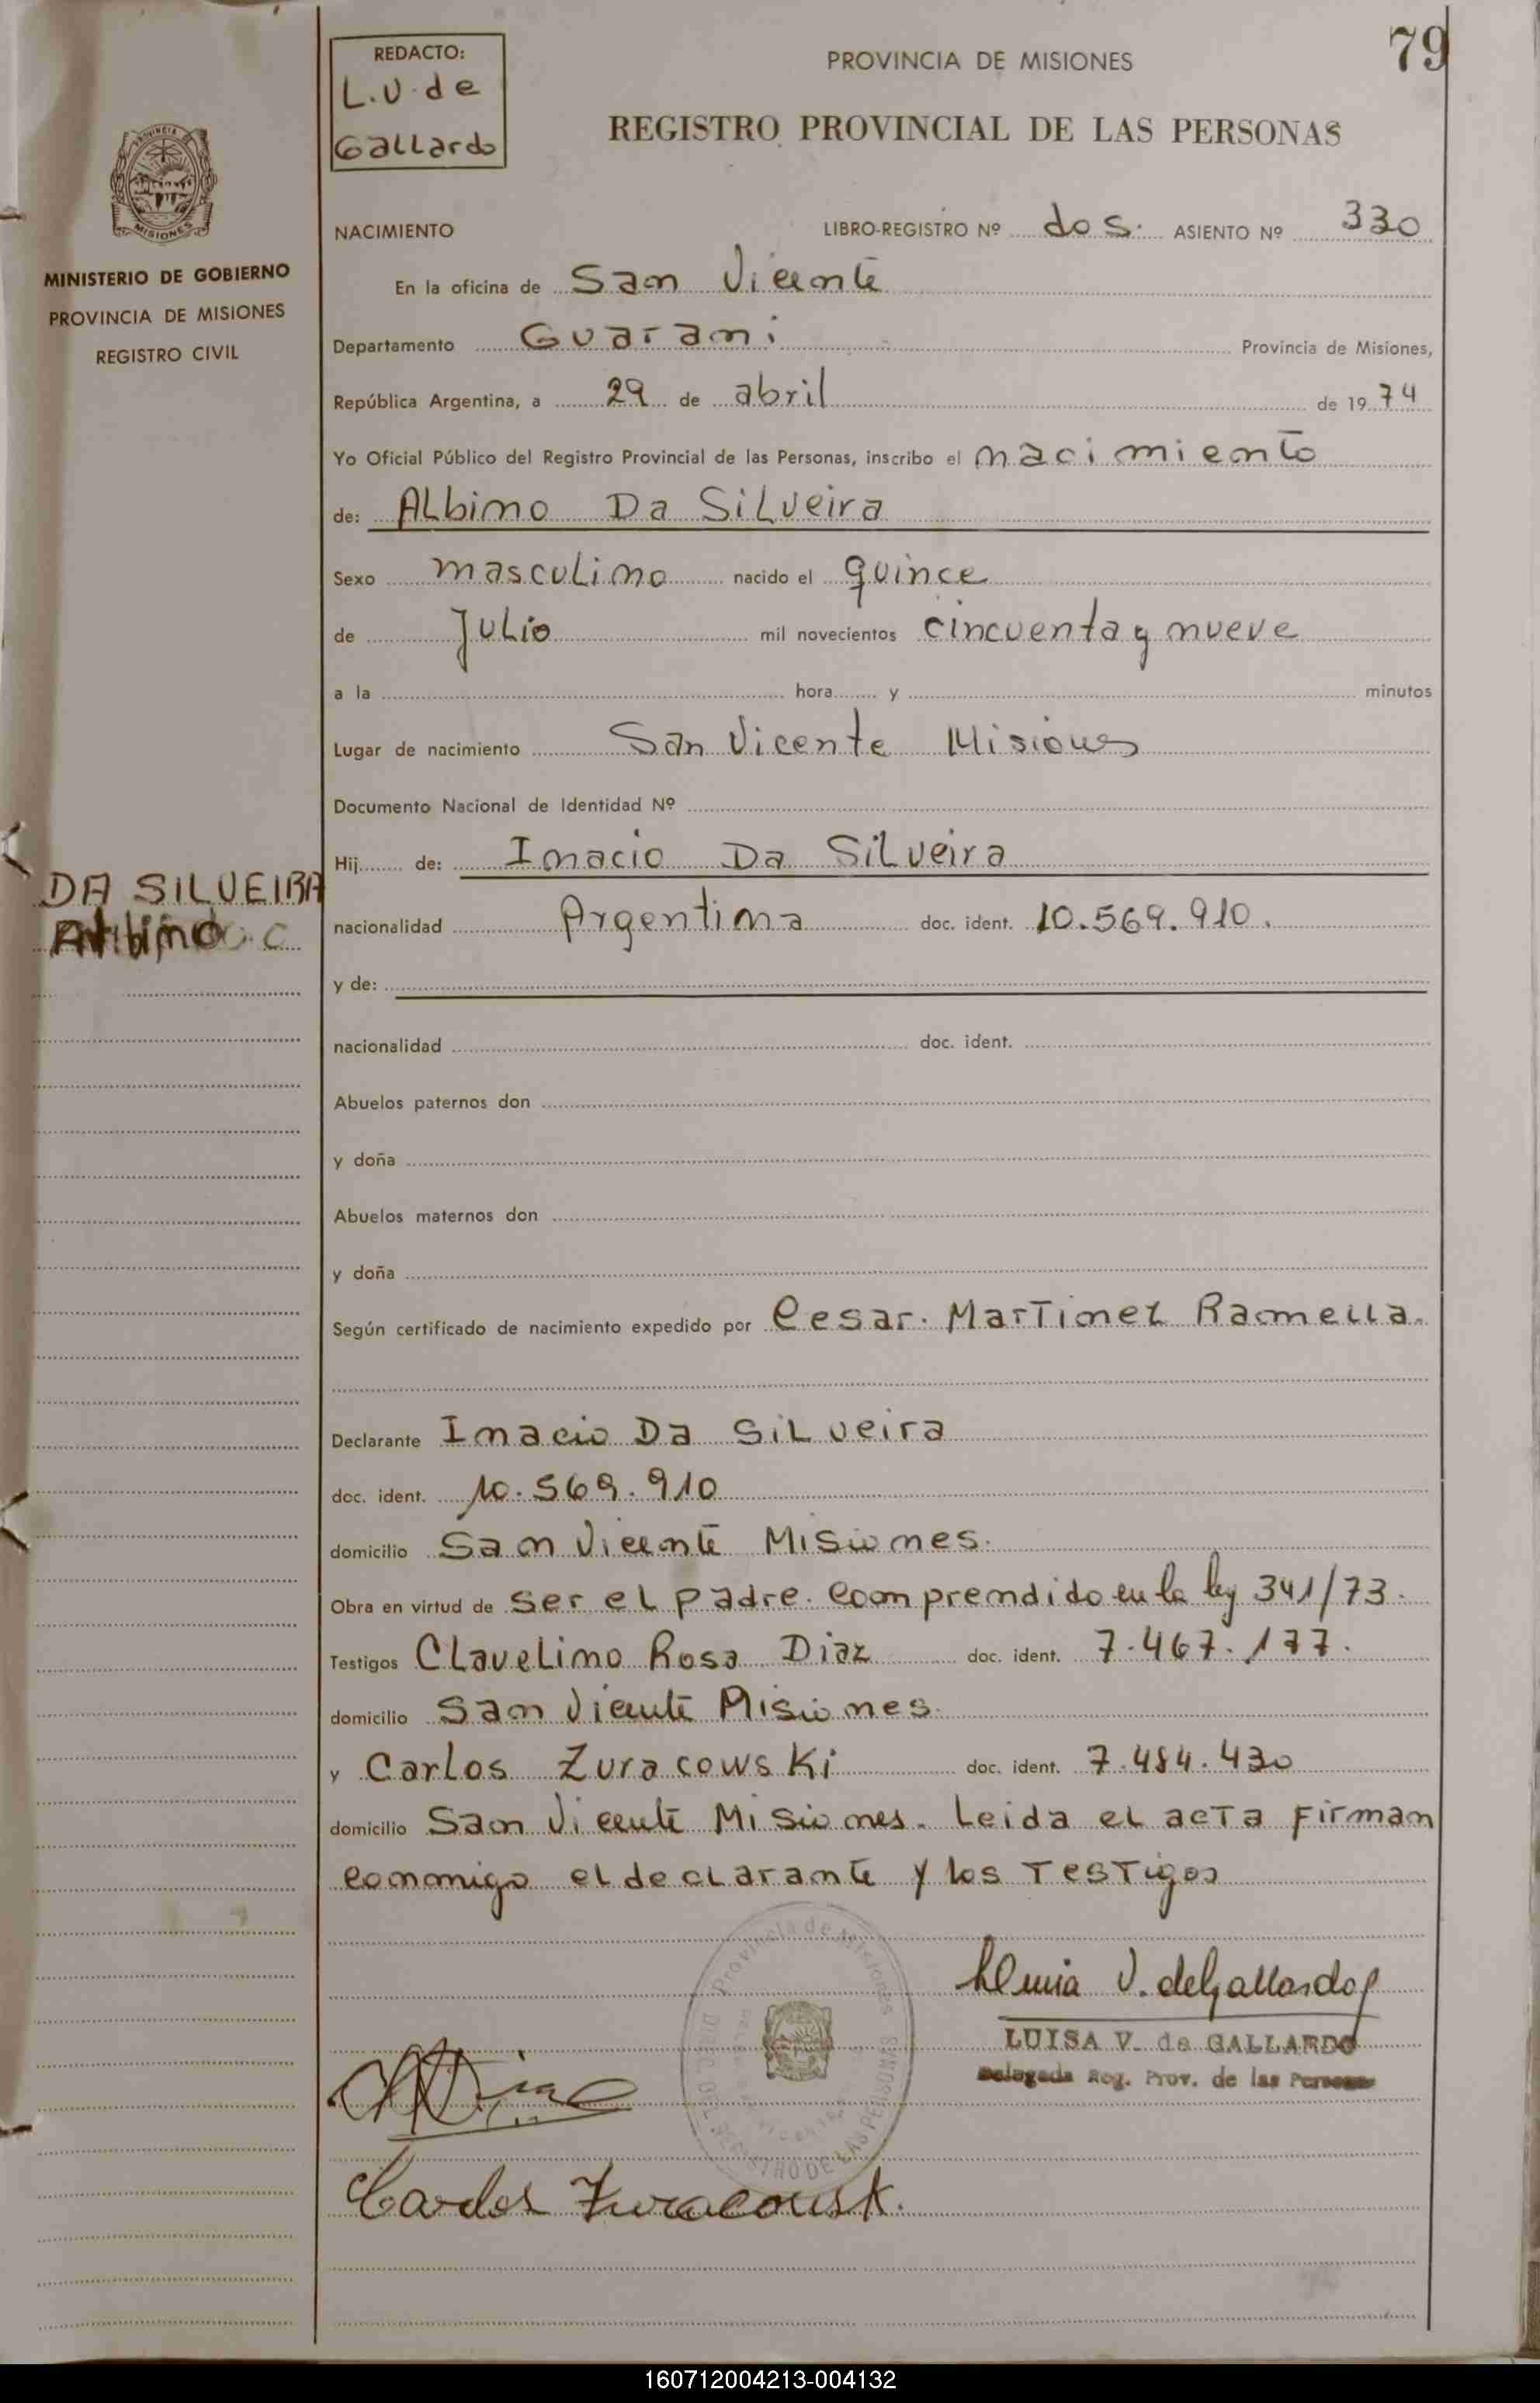 79
REDACTO:
L.U. de
Gallardo
PROVINCIA DE MISIONES
REGISTRO PROVINCIAL DE LAS PERSONAS
MISIONES
MINISTERIO DE GOBIERNO
PROVINCIA DE MISIONES
REGISTRO CIVIL
NACIMIENTO LIBRO-REGISTRO Nº dos. ASIENTO Nº 330
En la oficina de San Vicente
Departamento Guarani Provincia de Misiones,
República Argentina, a 29 de abril de 1974
Yo Oficial Público del Registro Provincial de las Personas, inscribo el nacimiento
de: ALbino Da SiLveira
Sexo mascuLino nacido el quince
de JuLio mil novecientos cincuenta y nueve
a la hora y minutos
Lugar de nacimiento San Vicente Misiones
Documento Nacional de Identidad Nº
Hij de: Inacio Da SiLveira
DA SILVEIRA
Albino
nacionalidad Argentina doc. ident. 10.569.910.
y de:
nacionalidad doc. ident.
Abuelos paternos don
y doña
Abuelos maternos don
y doña
Según certificado de nacimiento expedido por Cesar. Martinez Ramella.
Declarante Inacio Da SiLveira
doc. ident. 10.569.910
domicilio San Vicente Misiones.
Obra en virtud de ser eL padre. Comprendido en la ley 341/73.
Testigos CLaveLino Rosa Diaz doc. ident. 7.467.177.
domicilio San Vicente Misiones.
y CarLos Zuracowski doc. ident. 7.484.430
domicilio San Vicente Misiones. Leida eL acta firman
conmigo eL decLarante y los testigos
V. de Gallardo
LUISA V. de GALLARDO
Delegada Reg. Prov. de las Personas
Provincia de Misiones
REGISTRO DE LAS PERSONAS
Diaz
Carlos Zuracowsk.
160712004213-004132